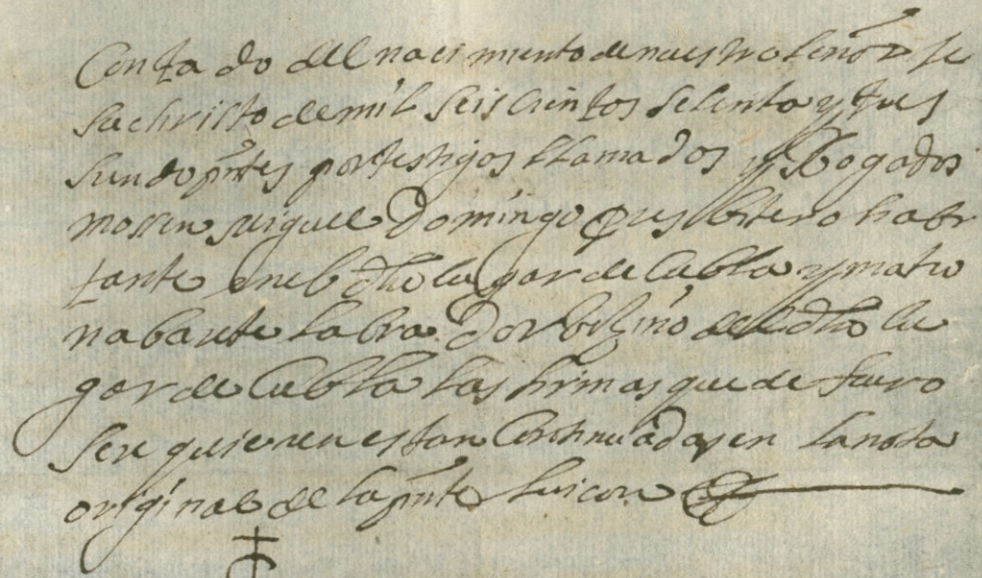 Contado del nacimiento de nuestro señor Je
suchristo de mil seiscientos setenta y tres
siendo pntes por testigos llamados y Rogados
mossen miguel Domingo presbitero habi
tante en el dho lugar de Cubla y matio
nabarrete labrador vezino del dho lu
gar de Cubla las firmas que de fuero
se requieren estan Continuadas en la nota
original de la pnte